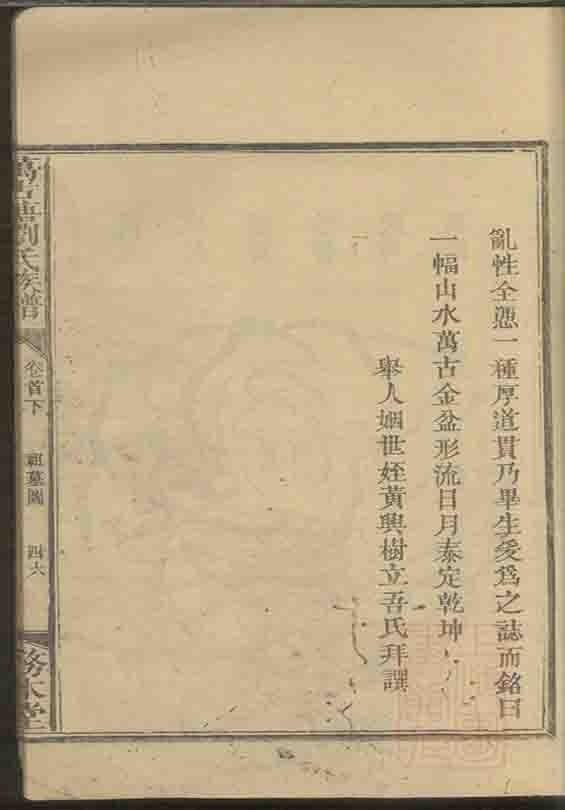 亂性全憑一種厚道貫乃畢生爰為之誌而銘曰
一幅山水萬古金盆形流日月泰定乾坤
舉人姻世姪黃興樹立吾氏拜譔
劉氏族譜
卷首下
祖墓圖
四六
務本堂